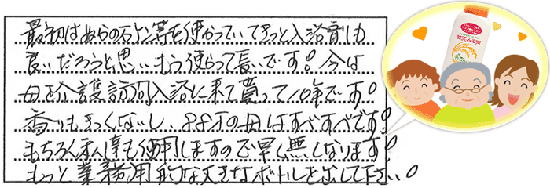 最初はあちらの方が等を使っていてきっと入浴剤も
良いだろうと思い、もう使って長いです。今は
母を介護訪問入浴に来て貰って10年です。
香りもきつくないし、88才の母はすべすべです!
もちろん私達も使用しますので早く無くなります!
もっと業務用的な大きなボトルを出して下さい。